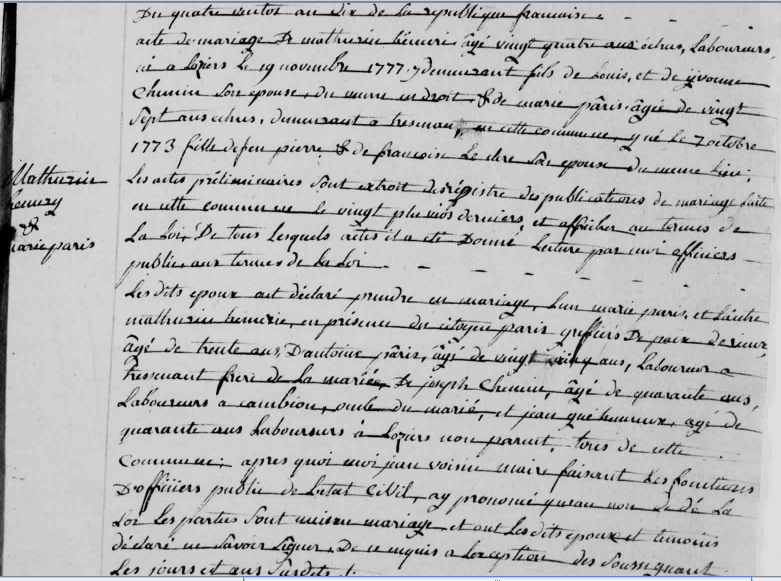 Du quatre ventos an dix de la republique francaise.
acte de mariage De mathurin hemeri âgé vingt quatre ans echus, Laboureurs,
né a Loziers Le 19 novembre 1777. y demeurant fils de Louis, et de yvonne
Chemin son epouse, du meme endroit. & de marie pâris. âgée de vingt
Sept ans echus, demeurant a tresman, en cette commune, y né le 7 octobre
1773 fille defeu pierre & de francoise Le clere Son epouse du meme lieu.
Les actes préliminaires Sont extrait des régistre des publications de mariage faite
en cette commune le vingt pluviôs derniers et afficher au termes de
La Loi, De tous Lesquels actes il a été Donné Lecture par moi officiers
public, aux termes de la Loi
Mathurin
hemery
&
marie paris
Les dits epoux ont déclaré prendre en mariage, L'un marie paris, et L'autre
mathurin hemerie, en présence du citoyen paris greffiers De paix de
âgé de trente ans, D'antoine pâris, âgé de vingt cinq ans, Laboureur a
tresmant frere de La mariée, De joseph Chemin, âgé de quarante ans,
Laboureurs a cambion, oncle du marié, et jean queheureux, agé de
quarante ans Laboureurs à Loziers non parent, tous de cette
Commune; apres quoi moi jean voisin maire faisant Les fonctions
D'officiers public de L'etat Civil, ay prononcé qu'au nom de la
Loi Les parties Sont unies en mariage, et ont Les dits epoux et temoins
déclaré ne Savoir Signer, De ce enquis a L'exception des Soussignant
Les jours et ans Susdits.